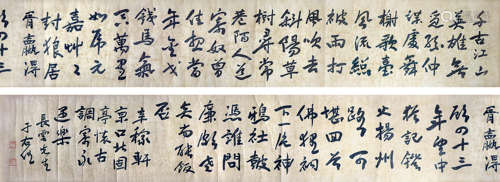 千古江山
英雄無
覓孫仲
謀處舞
榭歌臺
風流總
被雨打
風吹去
斜陽草
樹尋常
巷陌人道
寄奴曾
住想當
年金戈
鐵馬氣
吞萬里
如虎元
嘉草草
封狼居
胥贏得
顧四十三
胥贏得
顧四十三
年望中
猶記烽
火揚州
路可
堪回首
佛貍祠
下一片神
鴉社鼓
憑誰問
廉頗老
矣尚能飯
辛稼軒
京口北固
亭懷古
調寄永
遇樂
長雲先生
于右任